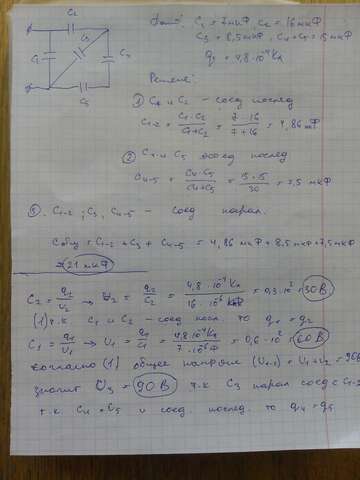 C₂
Дано: C₁ = 7 мкФ, C₂ = 16 мкФ
C₁ C₃ C₄
C₃ = 8,5 мкФ, C₄ = C₅ = 15 мкФ
q₁ = 4,8·10⁻⁴ Кл
C₅
Решение:
① C₁ и C₂ – соед послед
C₁₋₂ = C₁·C₂ / C₁+C₂ = 7·16 / 7+16 = 4,86 мФ
② C₄ и C₅ соед послед
C₄₋₅ = C₄·C₅ / C₄+C₅ = 15·15 / 30 = 7,5 мкФ
③. C₁₋₂; C₃, C₄₋₅ – соед парал.
Cобщ = C₁₋₂ + C₃ + C₄₋₅ = 4,86 мкФ + 8,5 мкФ + 7,5 мкФ
= 21 мкФ
C₂ = q₂/U₂ → U₂ = q₂/C₂ = 4,8·10⁻⁴ Кл / 16·10⁻⁶ = 0,3·10² = 30В
(1) т.к C₁ и C₂ – соед посл то q₁ = q₂
C₁ = q₁/U₁ → U₁ = q₁/C₁ = 4,8·10⁻⁴ Кл / 7·10⁻⁶ Ф = 0,6·10² = 60В
согласно (1) общее напряже (U₁₋₂) = U₁+U₂ = 90В
значит U₃ = 90В т.к C₃ парал соед с C₁₋₂
т.к C₄ и C₅ соед послед. то q₄ = q₅